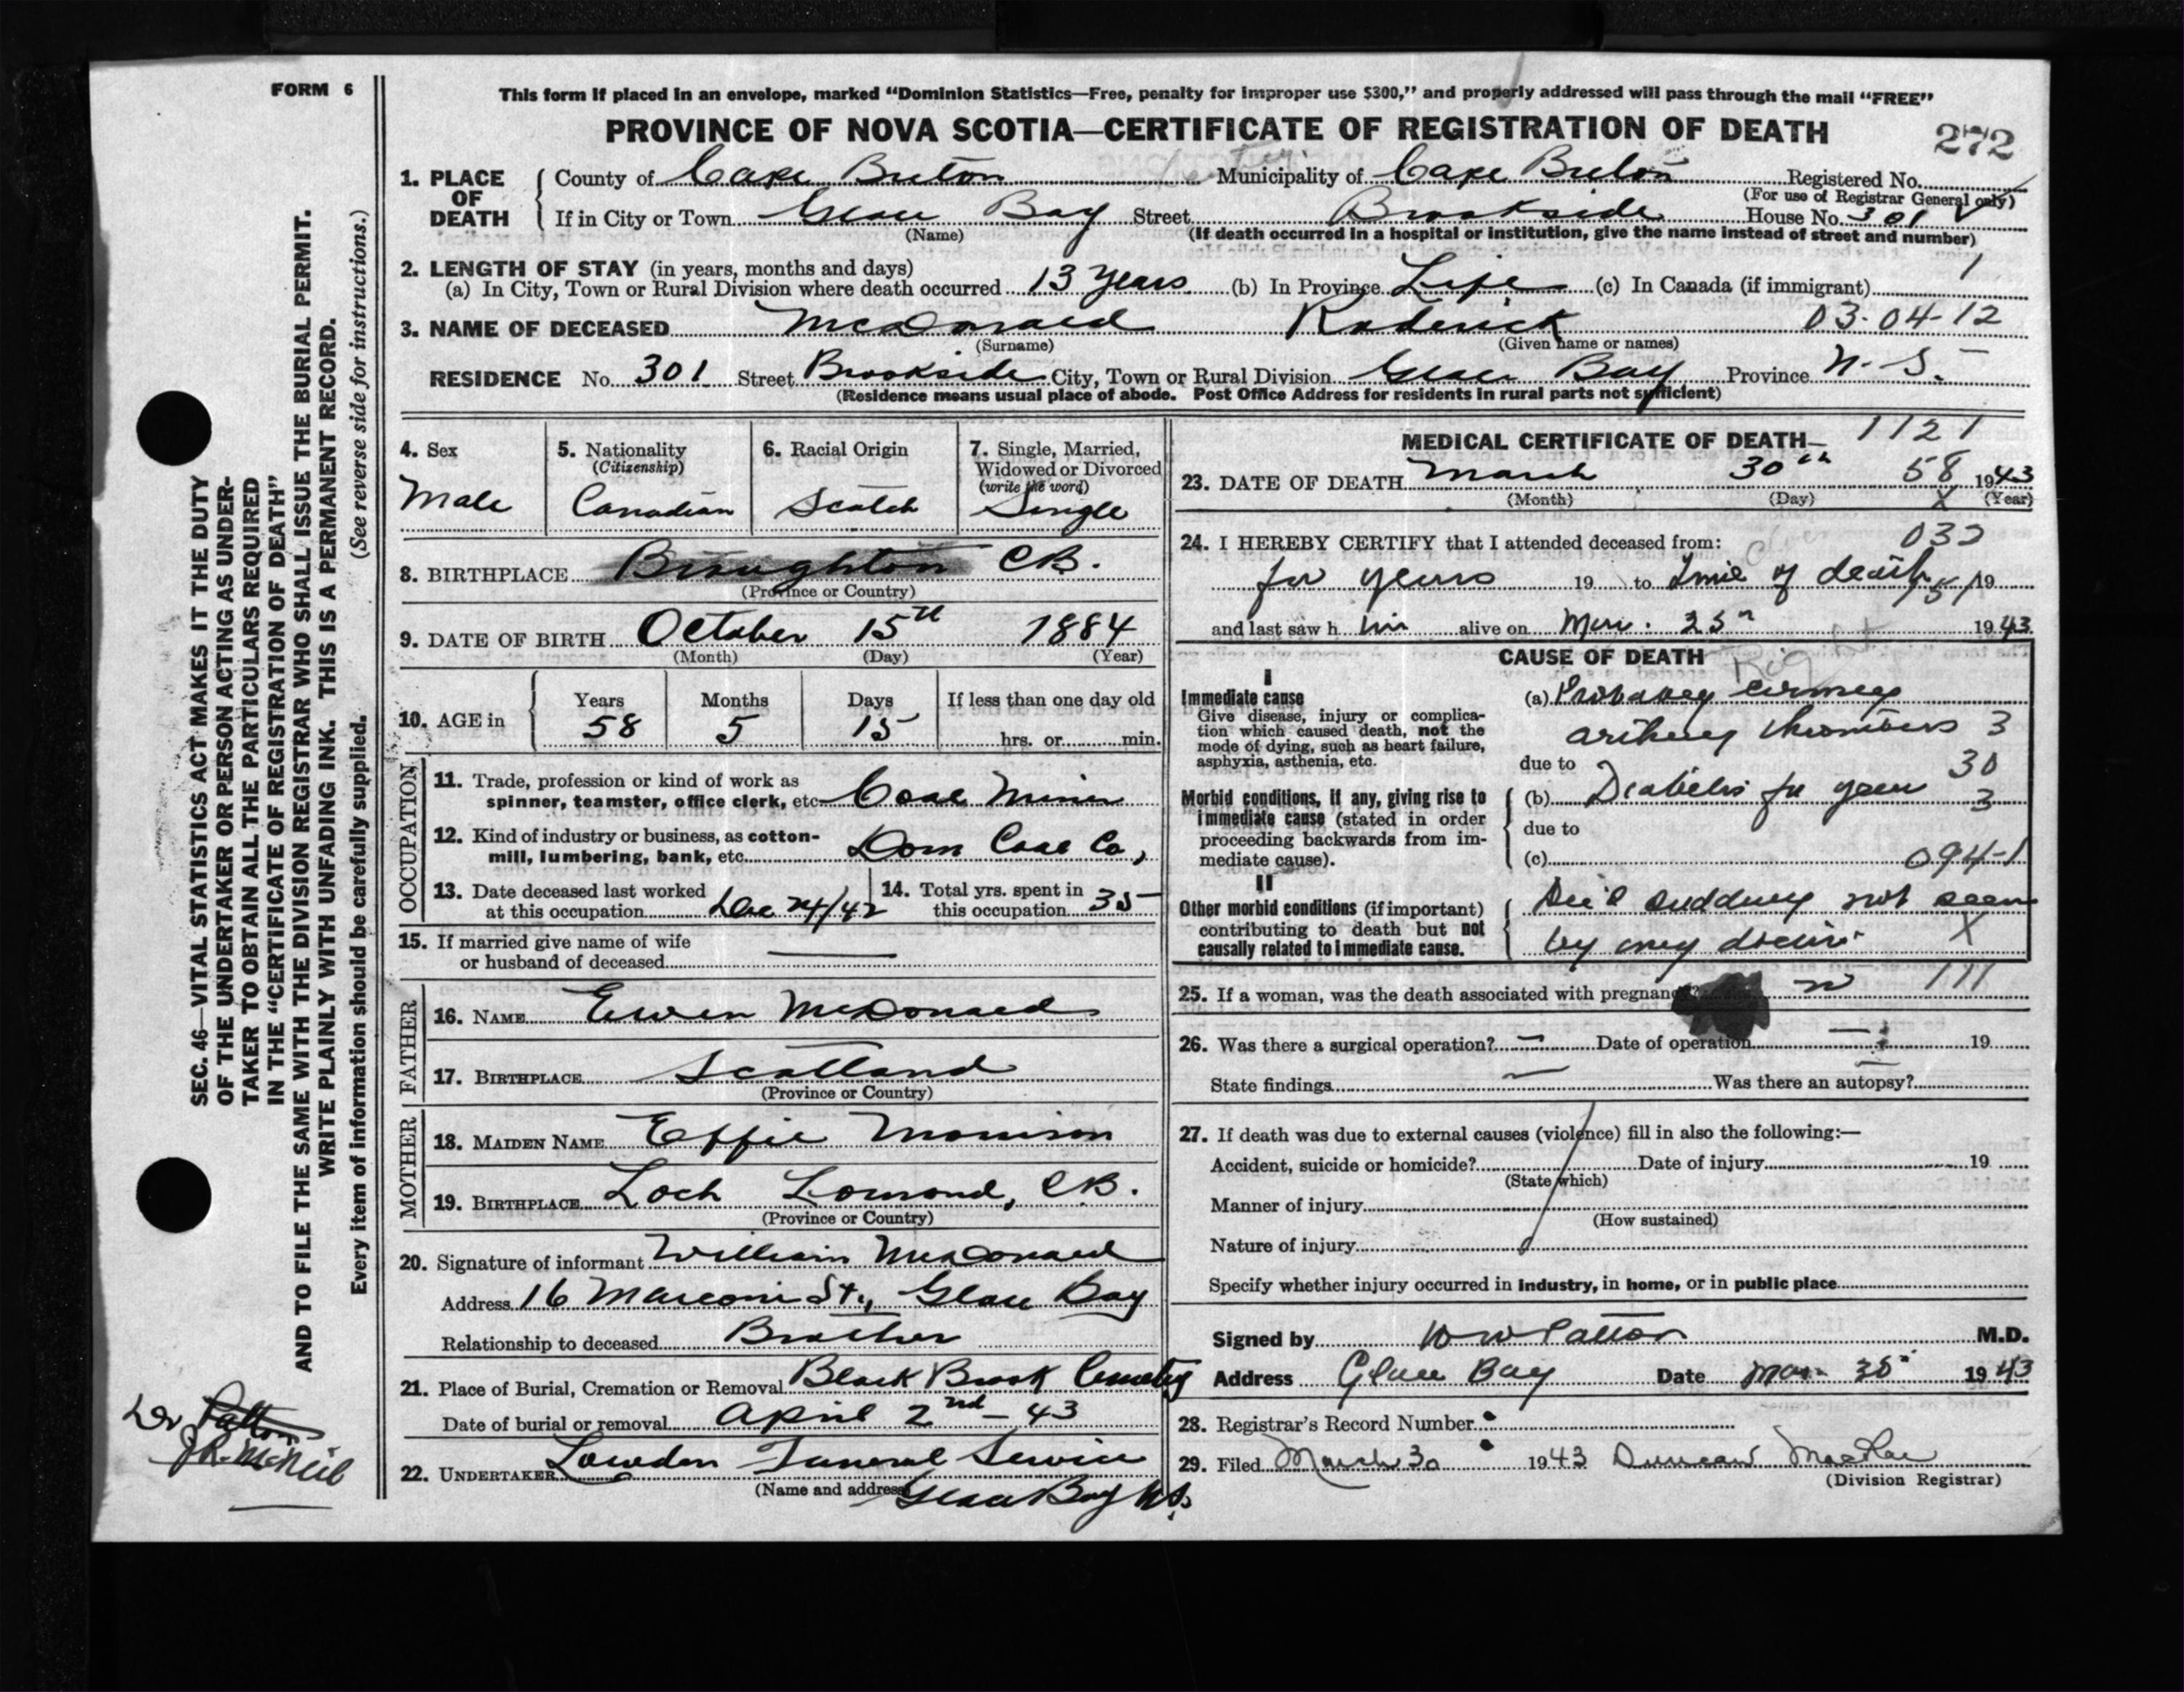 FORM 6
This form if placed in an envelope, marked “Dominion Statistics—Free, penalty for improper use $300,” and properly addressed will pass through the mail “FREE”
PROVINCE OF NOVA SCOTIA—CERTIFICATE OF REGISTRATION OF DEATH
272
1. PLACE OF DEATH County of Cape Breton Municipality of Cape Breton Registered No.
(For use of Registrar General only)
If in City or Town Glace Bay Street Brookside House No. 301
(Name) (If death occurred in a hospital or institution, give the name instead of street and number)
2. LENGTH OF STAY (in years, months and days)
(a) In City, Town or Rural Division where death occurred 13 years (b) In Province Life (c) In Canada (if immigrant) 1
3. NAME OF DECEASED McDonald Roderick 03-04-12
(Surname) (Given name or names)
RESIDENCE No. 301 Street Brookside City, Town or Rural Division Glace Bay Province N. S.
(Residence means usual place of abode. Post Office Address for residents in rural parts not sufficient)
4. Sex
Male
5. Nationality
(Citizenship)
Canadian
6. Racial Origin
Scotch
7. Single, Married,
Widowed or Divorced
(write the word)
Single
8. BIRTHPLACE Broughton C.B.
(Province or Country)
9. DATE OF BIRTH October 15th 1884
(Month) (Day) (Year)
10. AGE in
Years Months Days If less than one day old
58 5 15 hrs. or min.
OCCUPATION
11. Trade, profession or kind of work as
spinner, teamster, office clerk, etc. Coal Miner
12. Kind of industry or business, as cotton-
mill, lumbering, bank, etc. Dom Coal Co,
13. Date deceased last worked
at this occupation Dec 24/42
14. Total yrs. spent in
this occupation 35
15. If married give name of wife
or husband of deceased
FATHER
16. NAME Ewen McDonald
17. BIRTHPLACE Scotland
(Province or Country)
MOTHER
18. MAIDEN NAME Effie Morrison
19. BIRTHPLACE Loch Lomond, C.B.
(Province or Country)
20. Signature of informant William McDonald
Address 16 Marconi St., Glace Bay
Relationship to deceased Brother
21. Place of Burial, Cremation or Removal Black Brook Cemetery
Date of burial or removal April 2nd - 43
22. UNDERTAKER Lowden Funeral Service
(Name and address) Glace Bay N.S.
MEDICAL CERTIFICATE OF DEATH 1121
23. DATE OF DEATH March 30th 58 1943
(Month) (Day) X (Year)
24. I HEREBY CERTIFY that I attended deceased from: 032
for years 19 to time of death 19
and last saw h im alive on Mar. 25th 1943
CAUSE OF DEATH
I
Immediate cause
Give disease, injury or complica-
tion which caused death, not the
mode of dying, such as heart failure,
asphyxia, asthenia, etc.
(a) Probably coronary
artery thrombosis 3
due to
30
Morbid conditions, if any, giving rise to
immediate cause (stated in order
proceeding backwards from im-
mediate cause).
(b) Diabetes for years 3
due to
(c) 094-1
II
Other morbid conditions (if important)
contributing to death but not
causally related to immediate cause.
Died suddenly not seen
by any doctor X
25. If a woman, was the death associated with pregnancy? 111
26. Was there a surgical operation? — Date of operation — 19
State findings — Was there an autopsy? —
27. If death was due to external causes (violence) fill in also the following:—
Accident, suicide or homicide? Date of injury 19
(State which)
Manner of injury
(How sustained)
Nature of injury
Specify whether injury occurred in industry, in home, or in public place
Signed by W W Patton M.D.
Address Glace Bay Date Mar. 30 1943
28. Registrar's Record Number
29. Filed March 30 1943 Duncan MacRae
(Division Registrar)
SEC. 46—VITAL STATISTICS ACT MAKES IT THE DUTY
OF THE UNDERTAKER OR PERSON ACTING AS UNDER-
TAKER TO OBTAIN ALL THE PARTICULARS REQUIRED
IN THE “CERTIFICATE OF REGISTRATION OF DEATH”
AND TO FILE THE SAME WITH THE DIVISION REGISTRAR WHO SHALL ISSUE THE BURIAL PERMIT.
WRITE PLAINLY WITH UNFADING INK. THIS IS A PERMANENT RECORD.
Every item of information should be carefully supplied. (See reverse side for instructions.)
Dr Patton
J.R. McNeil